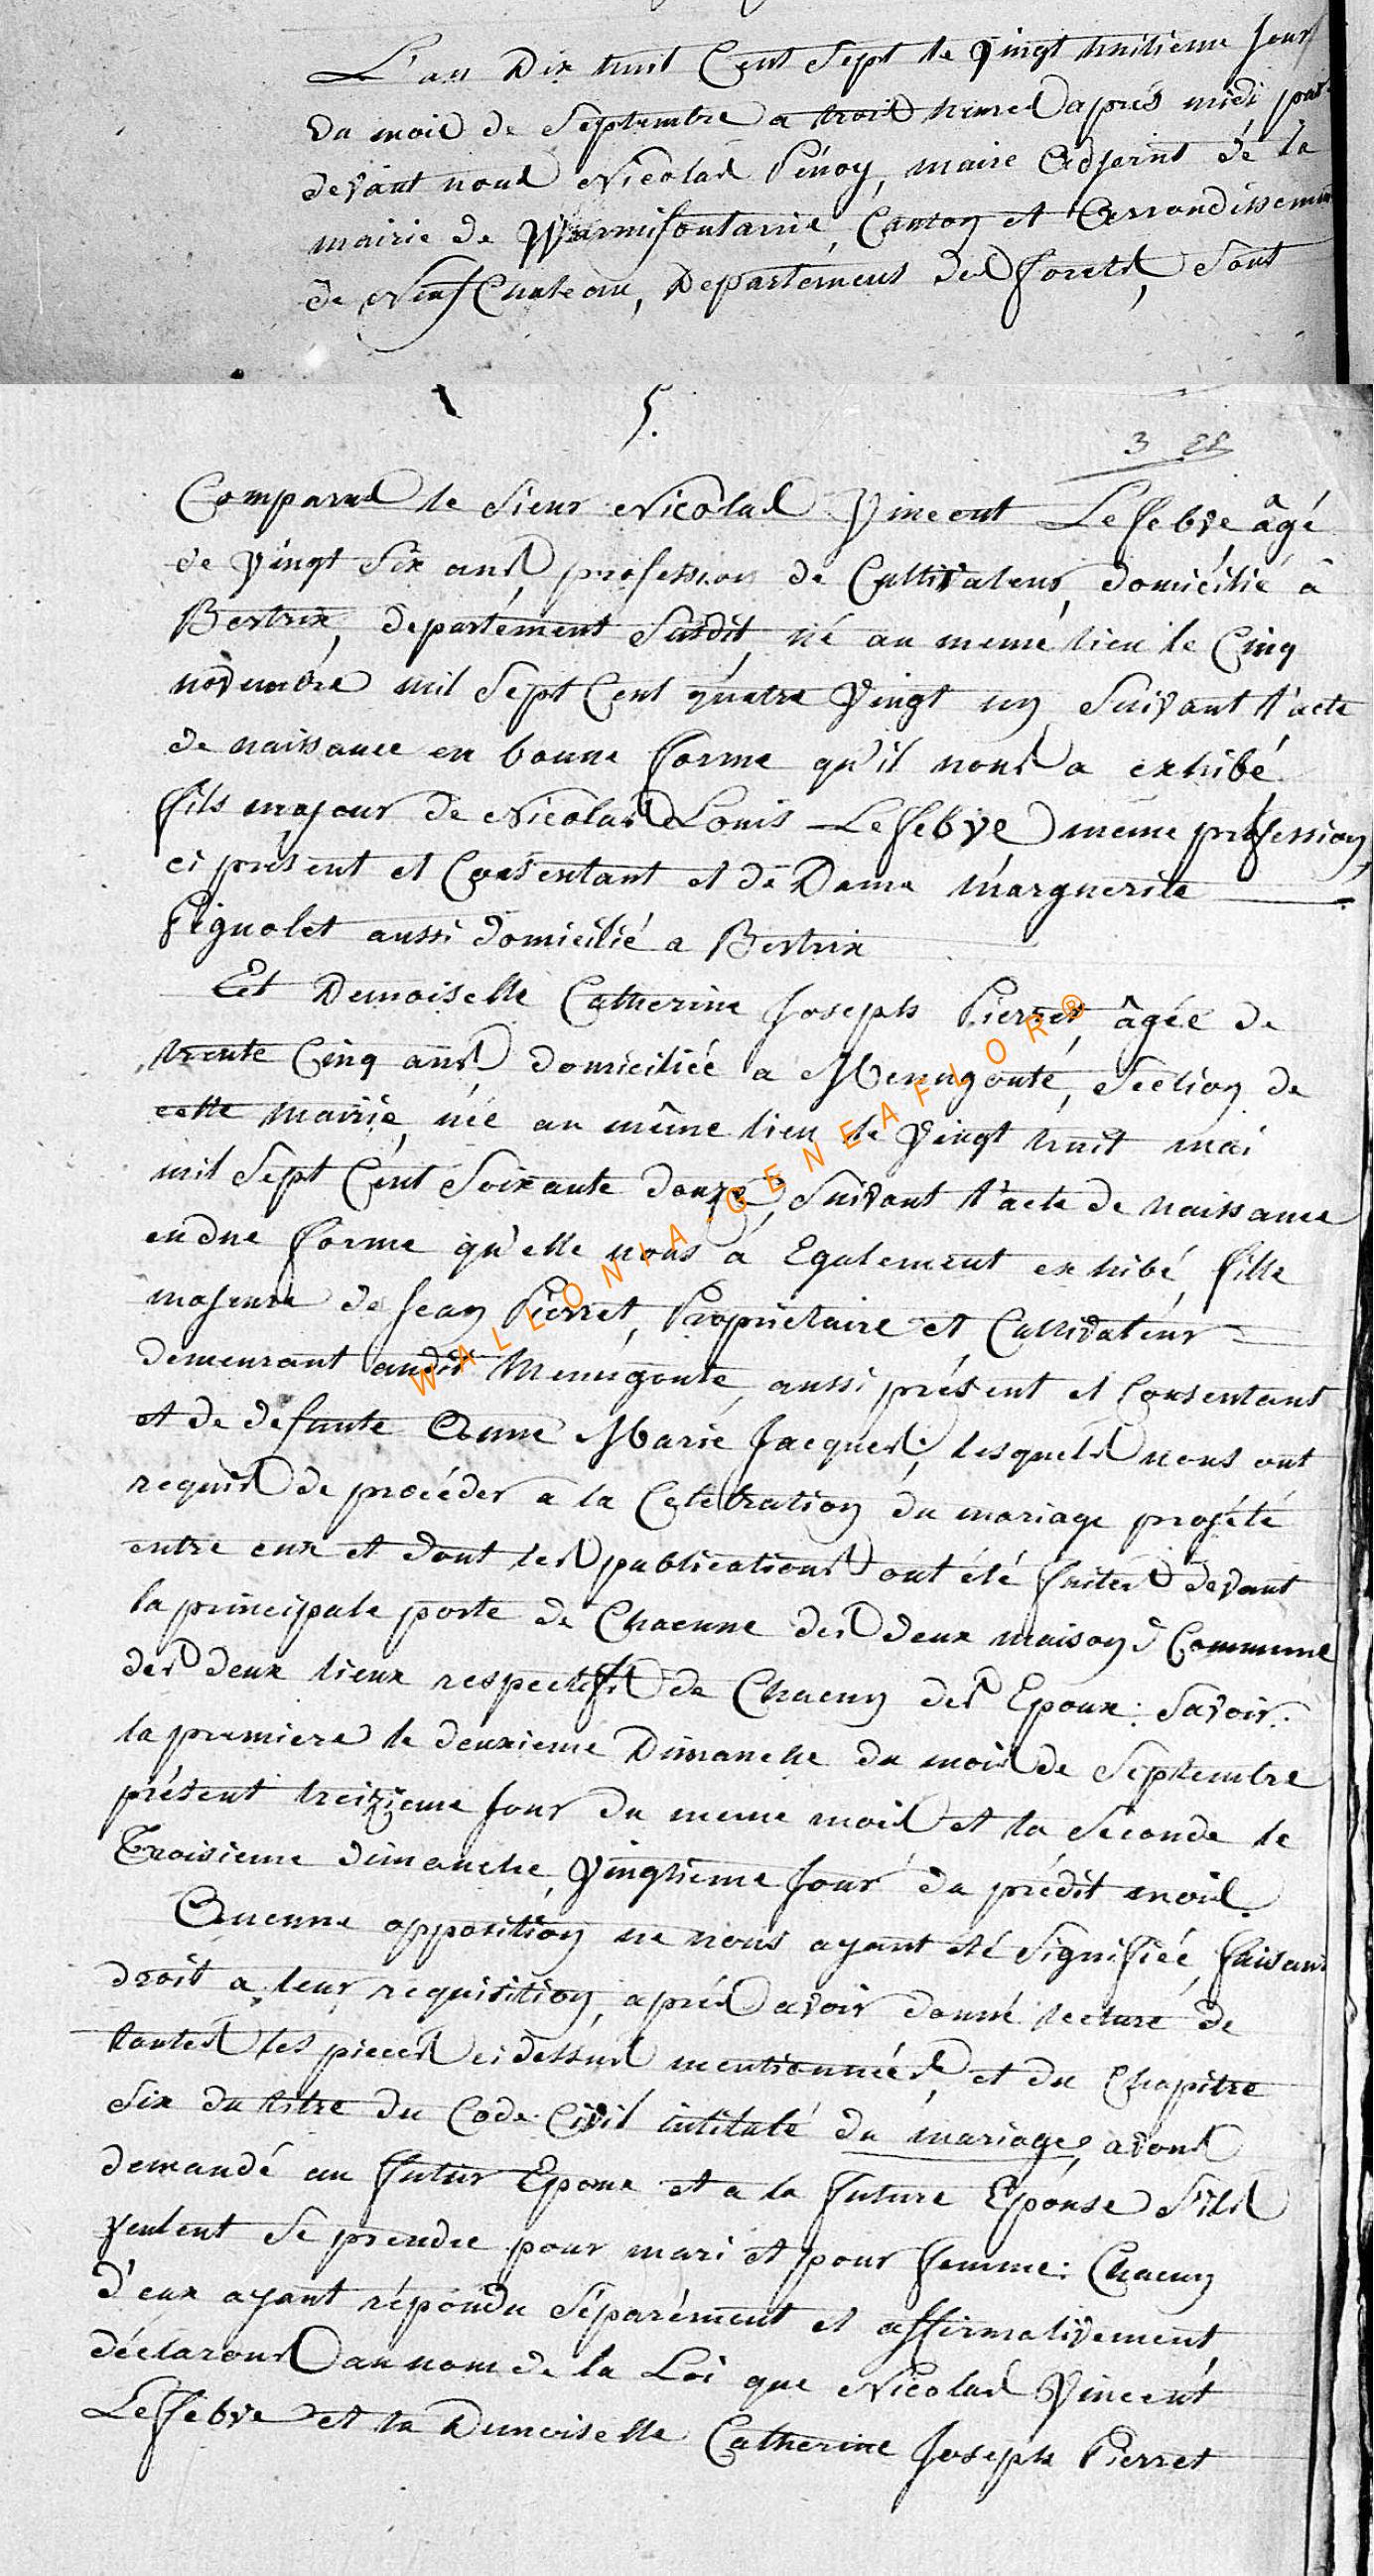 L'an Dix huit Cent Sept le Vingt huitieme Jour
Du mois de Septembre a trois heures après midi par
devant nous Nicolas Pénoy, maire Adjoint dé la
mairie de Warmifontaine, Canton et Arrondissement
de Neufchateau, Departement des forets, Sont
5.
3 88
Comparus le Sieur Nicolas Vincent Lefebve âgé
de Vingt Six ans, profession de Cultivateur, domicilié à
Bertrix, département Susdit, né au meme lieu le Cinq
novembre mil Sept Cent quatre Vingt un Suivant l'acte
de naissance en bonne forme qu'il nous a exhibé
fils majeur de Nicolas Louis Lefebve même profession,
ci présent et Consentant et de Dame Marguerite
Pignolet aussi domicilié a Bertrix
Et Demoiselle Catherine Joseph Pierret, âgée de
trente Cinq ans domiciliée a Menugouté, Section de
cette mairie, née au même lieu le Vingt huit mai
mil Sept Cent Soixante douze, Suivant l'acte de naissance
en due forme qu'elle nous a Egalement exhibé, fille
majeure de Jean Pierret, Propriétaire et Cultivateur
demeurant audit Menugoute, aussi présent et Consentant
et de defunte Anne Marie Jacques; lesquels nous ont
requis de procéder a la Celebration du mariage projété
entre eux et dont les publications ont été faites devant
la principale porte de Chacune des deux maisons Commune
des deux lieux respectifs de Chacun des Epoux: Savoir:
la premiere le deuxieme Dimanche du mois de Septembre
présent treizieme Jour du meme mois et la Seconde le
Troisieme dimanche, Vingtieme Jour du prédit mois.
Aucune opposition ne nous ayant été Signifiée, faisant
droit a leur requisition, après avoir donné lecture de
toutes les pieces ci dessus mentionnées, et du Chapitre
Six du titre du Code Civil intitulé du mariage, avons
demandé au futur Epoux et a la future Epouse S'ils
veulent Se prendre pour mari et pour femme: Chacun
d'eux ayant répondu Séparément et affirmativement,
déclarons au nom de la Loi que Nicolas Vincent
Lefebve et la Demoiselle Catherine Joseph Pierret
WALLONIA-GENEAFLOR®